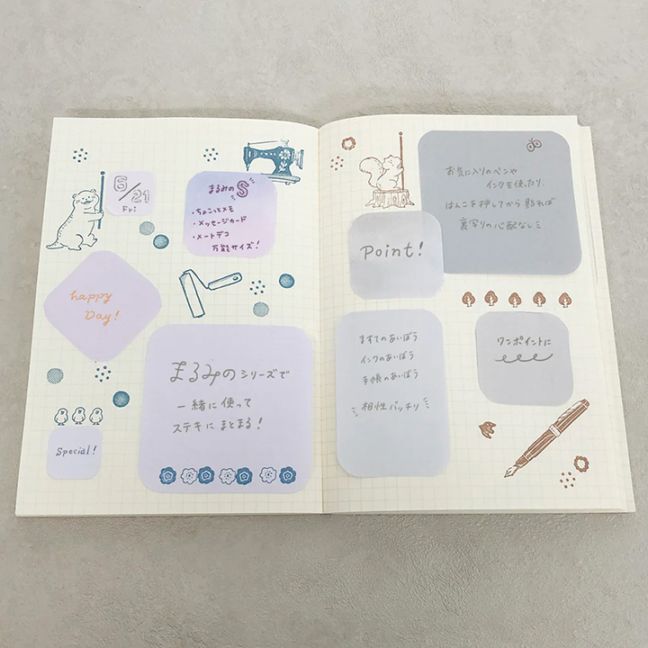 6/21
Fri
まるみの S
・ちょこっとメモ
・メッセージカード
・ノートデコ
万能サイズ!
happy
Day!
まるみのシリーズで
一緒に使って
ステキにまとまる!
Special!
お気に入りのペンや
インクを使ったり、
はんこを押してから貼れば
裏写りの心配なし
Point!
ますてのあいぼう
インクのあいぼう
手帳のあいぼう
相性バッチリ
ワンポイントに